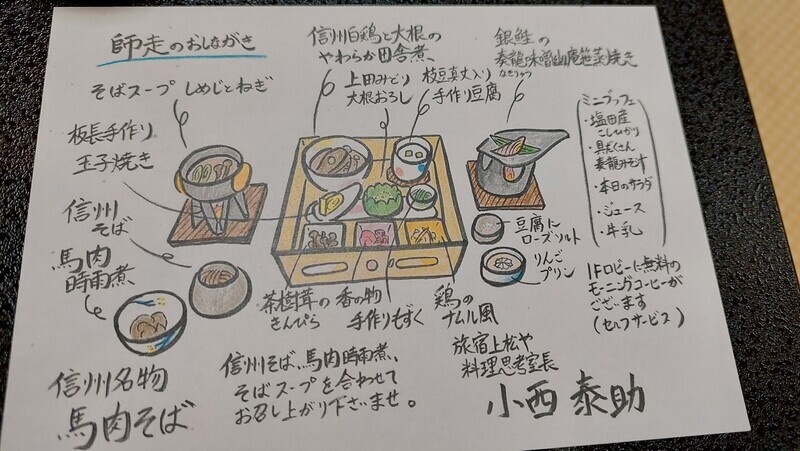 師走のおしながき
信州白鶏と大根の
やわらか田舎煮、
銀鮭の
奏龍味噌幽庵笹蒸焼き
なきりゅう
そばスープ しめじとねぎ
上田みどり
大根おろし
枝豆真丈入り
手作り豆腐
板長手作り
玉子焼き
信州
そば
馬肉
時雨煮
ミニブッフェ
・塩田産
こしひかり
・具だくさん
奏龍みそ汁
・本日のサラダ
・ジュース
・牛乳
豆腐に
ローズソルト
りんご
プリン
1Fロビーに無料の
モーニングコーヒーが
ございます
(セルフサービス)
茶樹茸の
きんぴら
香の物
手作りもずく
鶏の
ナムル風
信州名物
馬肉そば
信州そば、馬肉時雨煮、
そばスープを合わせて
お召し上がり下さいませ。
旅宿上松や
料理思考室長
小西 泰助